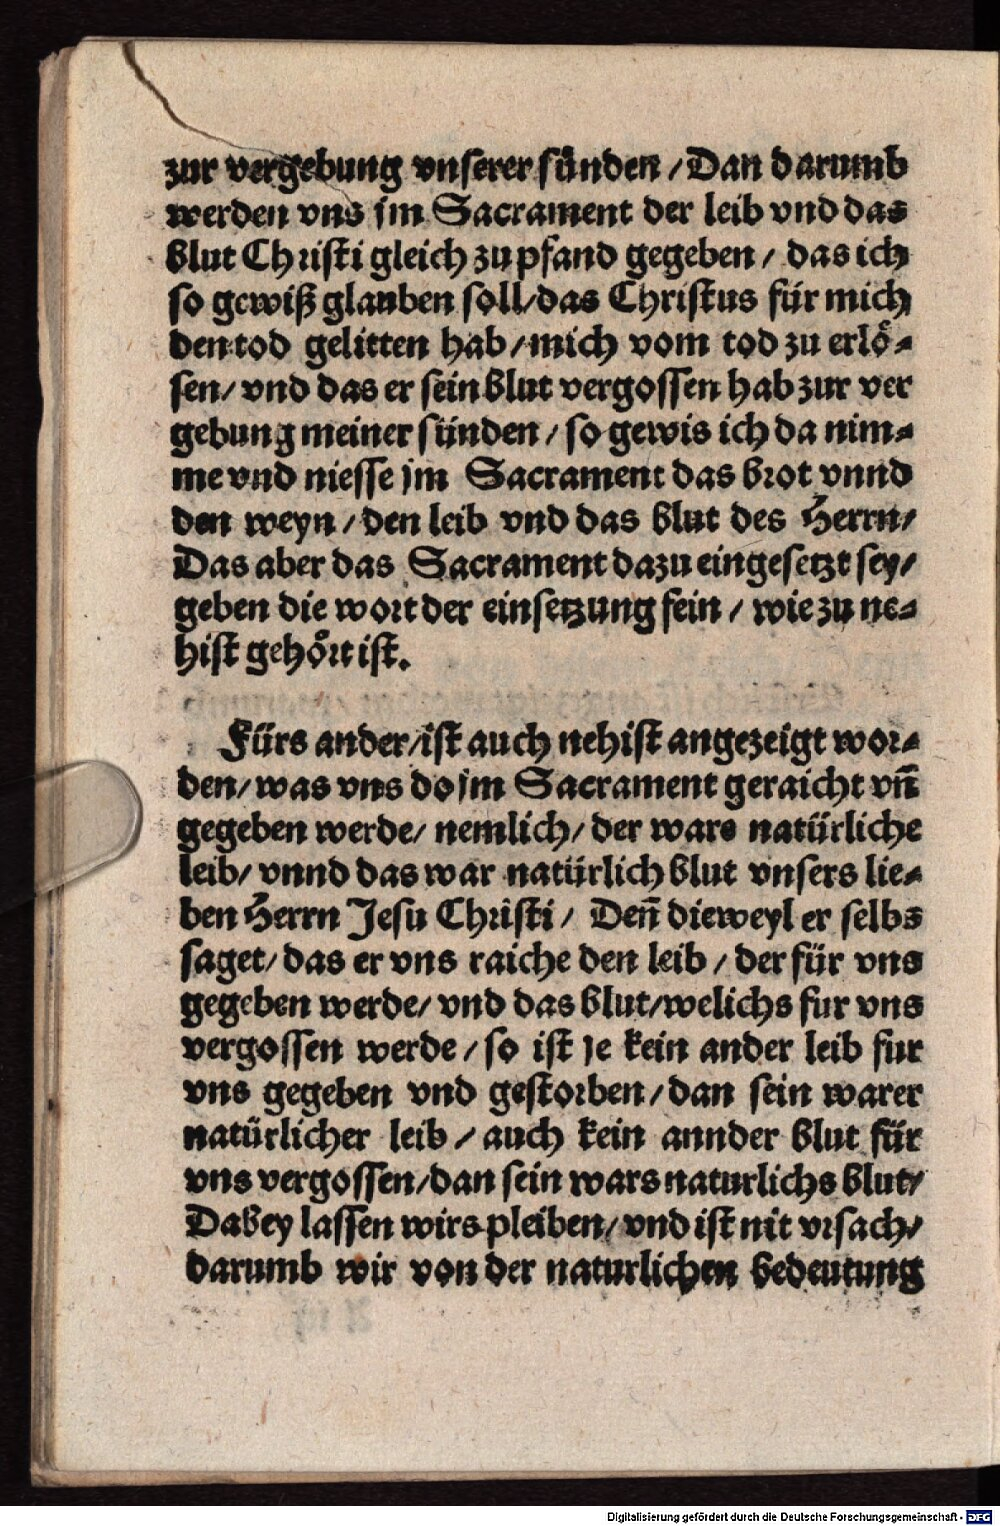 zur vergebung vnserer sünden / Dan darumb
werden vns jm Sacrament der leib vnd das
blut Christi gleich zu pfand gegeben / das ich
so gewiß glauben soll / das Christus für mich
den tod gelitten hab / mich vom tod zu erlö⸗
sen / vnd das er sein blut vergossen hab zur ver
gebung meiner sünden / so gewis ich da nim⸗
me vnd niesse jm Sacrament das brot vnnd
den weyn / den leib vnd das blut des Herrn /
Das aber das Sacrament dazu eingesetzt sey /
geben die wort der einsetzung fein / wie zu ne⸗
hist gehört ist.
Fürs ander / ist auch nehist angezeigt wor⸗
den / was vns do jm Sacrament geraicht vñ
gegeben werde / nemlich / der ware natürliche
leib / vnnd das war natürlich blut vnsers lie⸗
ben Herrn Jesu Christi / Deñ dieweyl er selbs
saget / das er vns raiche den leib / der für vns
gegeben werde / vnd das blut / welichs fur vns
vergossen werde / so ist je kein ander leib fur
vns gegeben vnd gestorben / dan sein warer
natürlicher leib / auch kein annder blut für
vns vergossen / dan sein wars naturlichs blut /
Dabey lassen wirs pleiben / vnd ist nit vrsach /
darumb wir von der naturlichen bedeutung
Digitalisierung gefördert durch die Deutsche Forschungsgemeinschaft - DFG